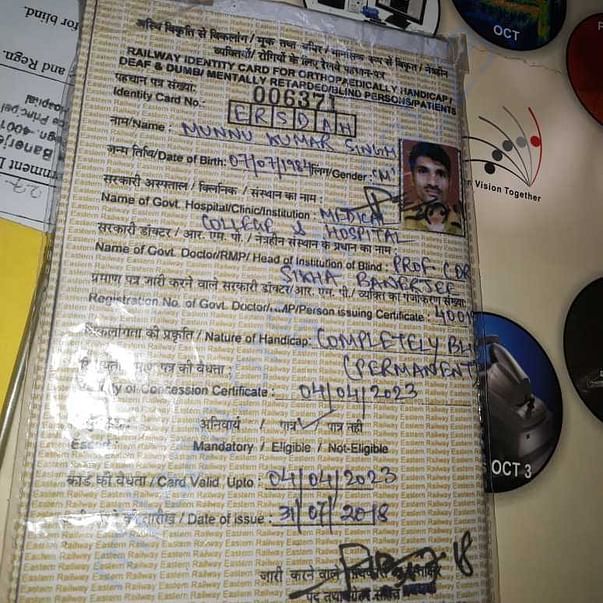 अस्थि विकृति से विकलांग / मूक तथा बधिर / मानसिक रूप से विकृत / नेत्रहीन
व्यक्तियों / रोगियों के लिए रेलवे पहचान-पत्र
RAILWAY IDENTITY CARD FOR ORTHOPAEDICALLY HANDICAP /
DEAF & DUMB/ MENTALLY RETARDED/BLIND PERSONS/PATIENTS
पहचान पत्र संख्या:
Identity Card No.: 006371
ERSDAH
नाम/Name : MUNNU KUMAR SINGH
जन्म तिथि/Date of Birth: 07/07/1984 लिंग/Gender : M
सरकारी अस्पताल / क्लिनिक / संस्थान का नाम :
Name of Govt. Hospital/Clinic/Institution : MEDICAL
COLLEGE & HOSPITAL
सरकारी डॉक्टर / आर. एम. पी. / नेत्रहीन संस्थान के प्रधान का नाम :
Name of Govt. Doctor/RMP/ Head of Institution of Blind : PROF (DR
SIKHA BANERJEE
प्रमाण पत्र जारी करने वाले सरकारी डॉक्टर/आर. एम. पी. / व्यक्ति का पंजीकरण संख्या:
Registration No. of Govt. Doctor/ /Person issuing Certificate : 4001
विकलांगता की प्रकृति / Nature of Handicap: COMPLETELY
(PERMANENT)
पत्र की वैधता :
of Concession Certificate : 04/04/2023
अनिवार्य / पात्र / पात्र नहीं
Mandatory / Eligible / Not-Eligible
कार्ड की वैधता / Card Valid Upto : 04/04/2023
तारीख / Date of issue : 31/07/2018
जारी करने वाले
18
OCT
Vision Together
OCT 3
for blind.
and Regn.
Hospital
Banerjee